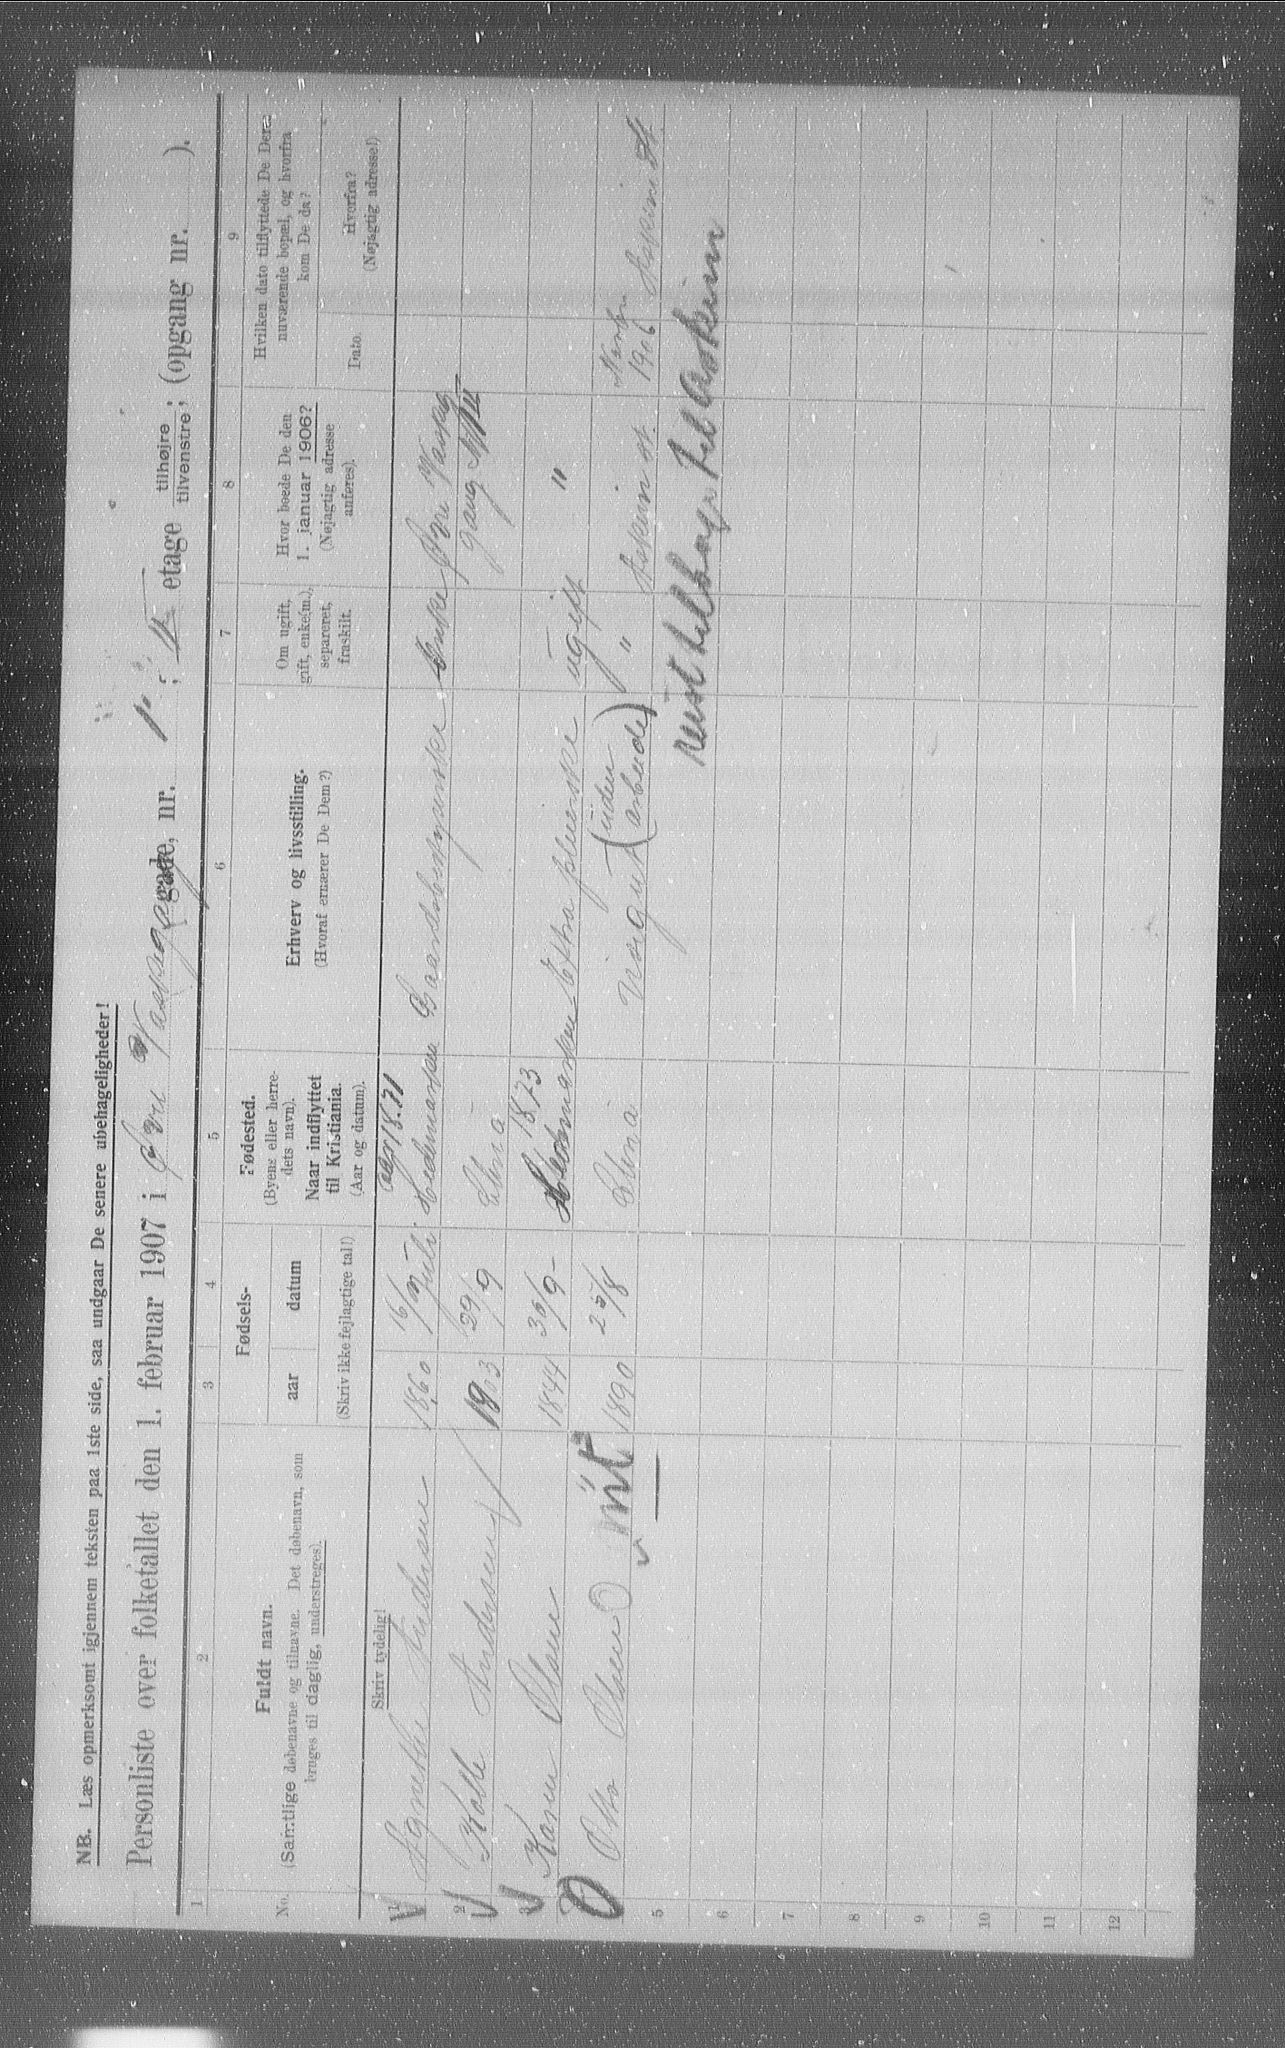 NB. Læs opmerksomt igjennem teksten paa 1ste side, saa undgaar De senere ubehageligheder!
Personliste over folketallet den 1. februar 1907 i Øvre Vaskegang gade, nr. 1; II etage tilhøjre / tilvenstre; (opgang nr. ).
1 2 3 4 5 6 7 8 9
No.
Fuldt navn.
(Samtlige døbenavne og tilnavne. Det døbenavn, som
bruges til daglig, understreges).
Fødsels-
aar datum
(Skriv ikke fejlagtige tal!)
Fødested.
(Byens eller herre-
dets navn).
Naar indflyttet
til Kristiania.
(Aar og datum).
Erhverv og livsstilling.
(Hvoraf ernærer De Dem?)
Om ugift,
gift, enke(m.),
separeret,
fraskilt.
Hvor boede De den
1. januar 1906?
(Nøjagtig adresse
anføres).
Hvilken dato tilflyttede De Deres
nuværende bopæl, og hvorfra
kom De da?
Dato.
Hvorfra?
(Nøjagtig adresse!)
Skriv tydelig!
1 Agnethe Andersen 1860 16/ Juli Hedemarken 1871 Enke Øvre Vaskegang
2 Kalle Andersen 1903 29/9 Chria
3 Karen Olsen 1844 30/9 Hedemarken 1873 ugift "
Otto Olsen 1890 25/8 Chria Visergut (uden arbeide) " Askim st. 1906 Askim St.
mt
reist tilbage til Askim
5
6
7
8
9
10
11
12